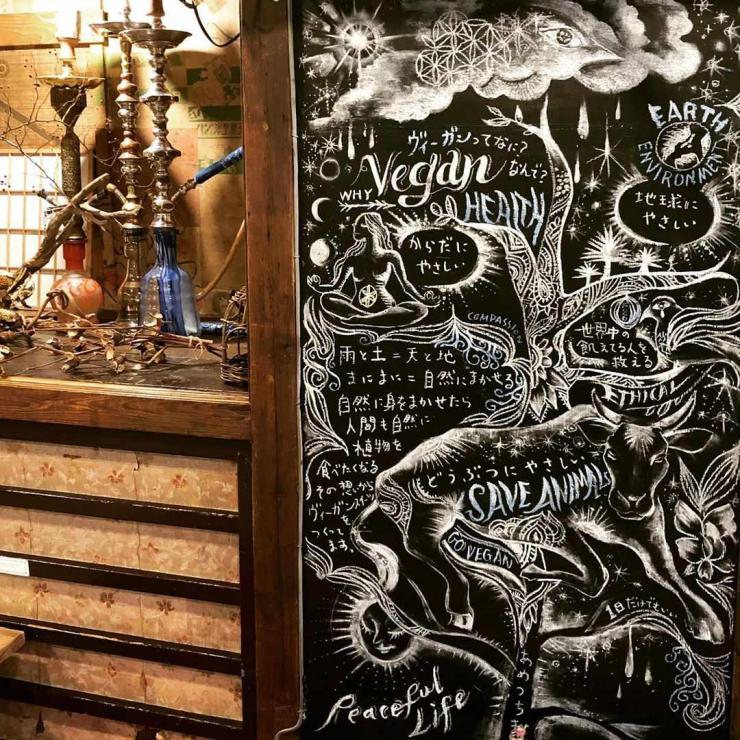 EARTH
ENVIRONMENT
ヴィーガンってなに?
WHY Vegan なんで?
HEALTH
地球に
やさしい
からだに
やさしい
COMPASSION
世界中の
飢えてる人を
救える
雨と土=天と地
まにまに=自然にまかせる
自然に身をまかせたら
人間も自然に
植物を
食べたくなる
その想から
ヴィーガンスイーツ
を
つくって
ます。
ETHICAL
どうぶつにやさしい
SAVE ANIMALS
GO VEGAN
1日だけでもいい
あめつち
Peaceful
Life